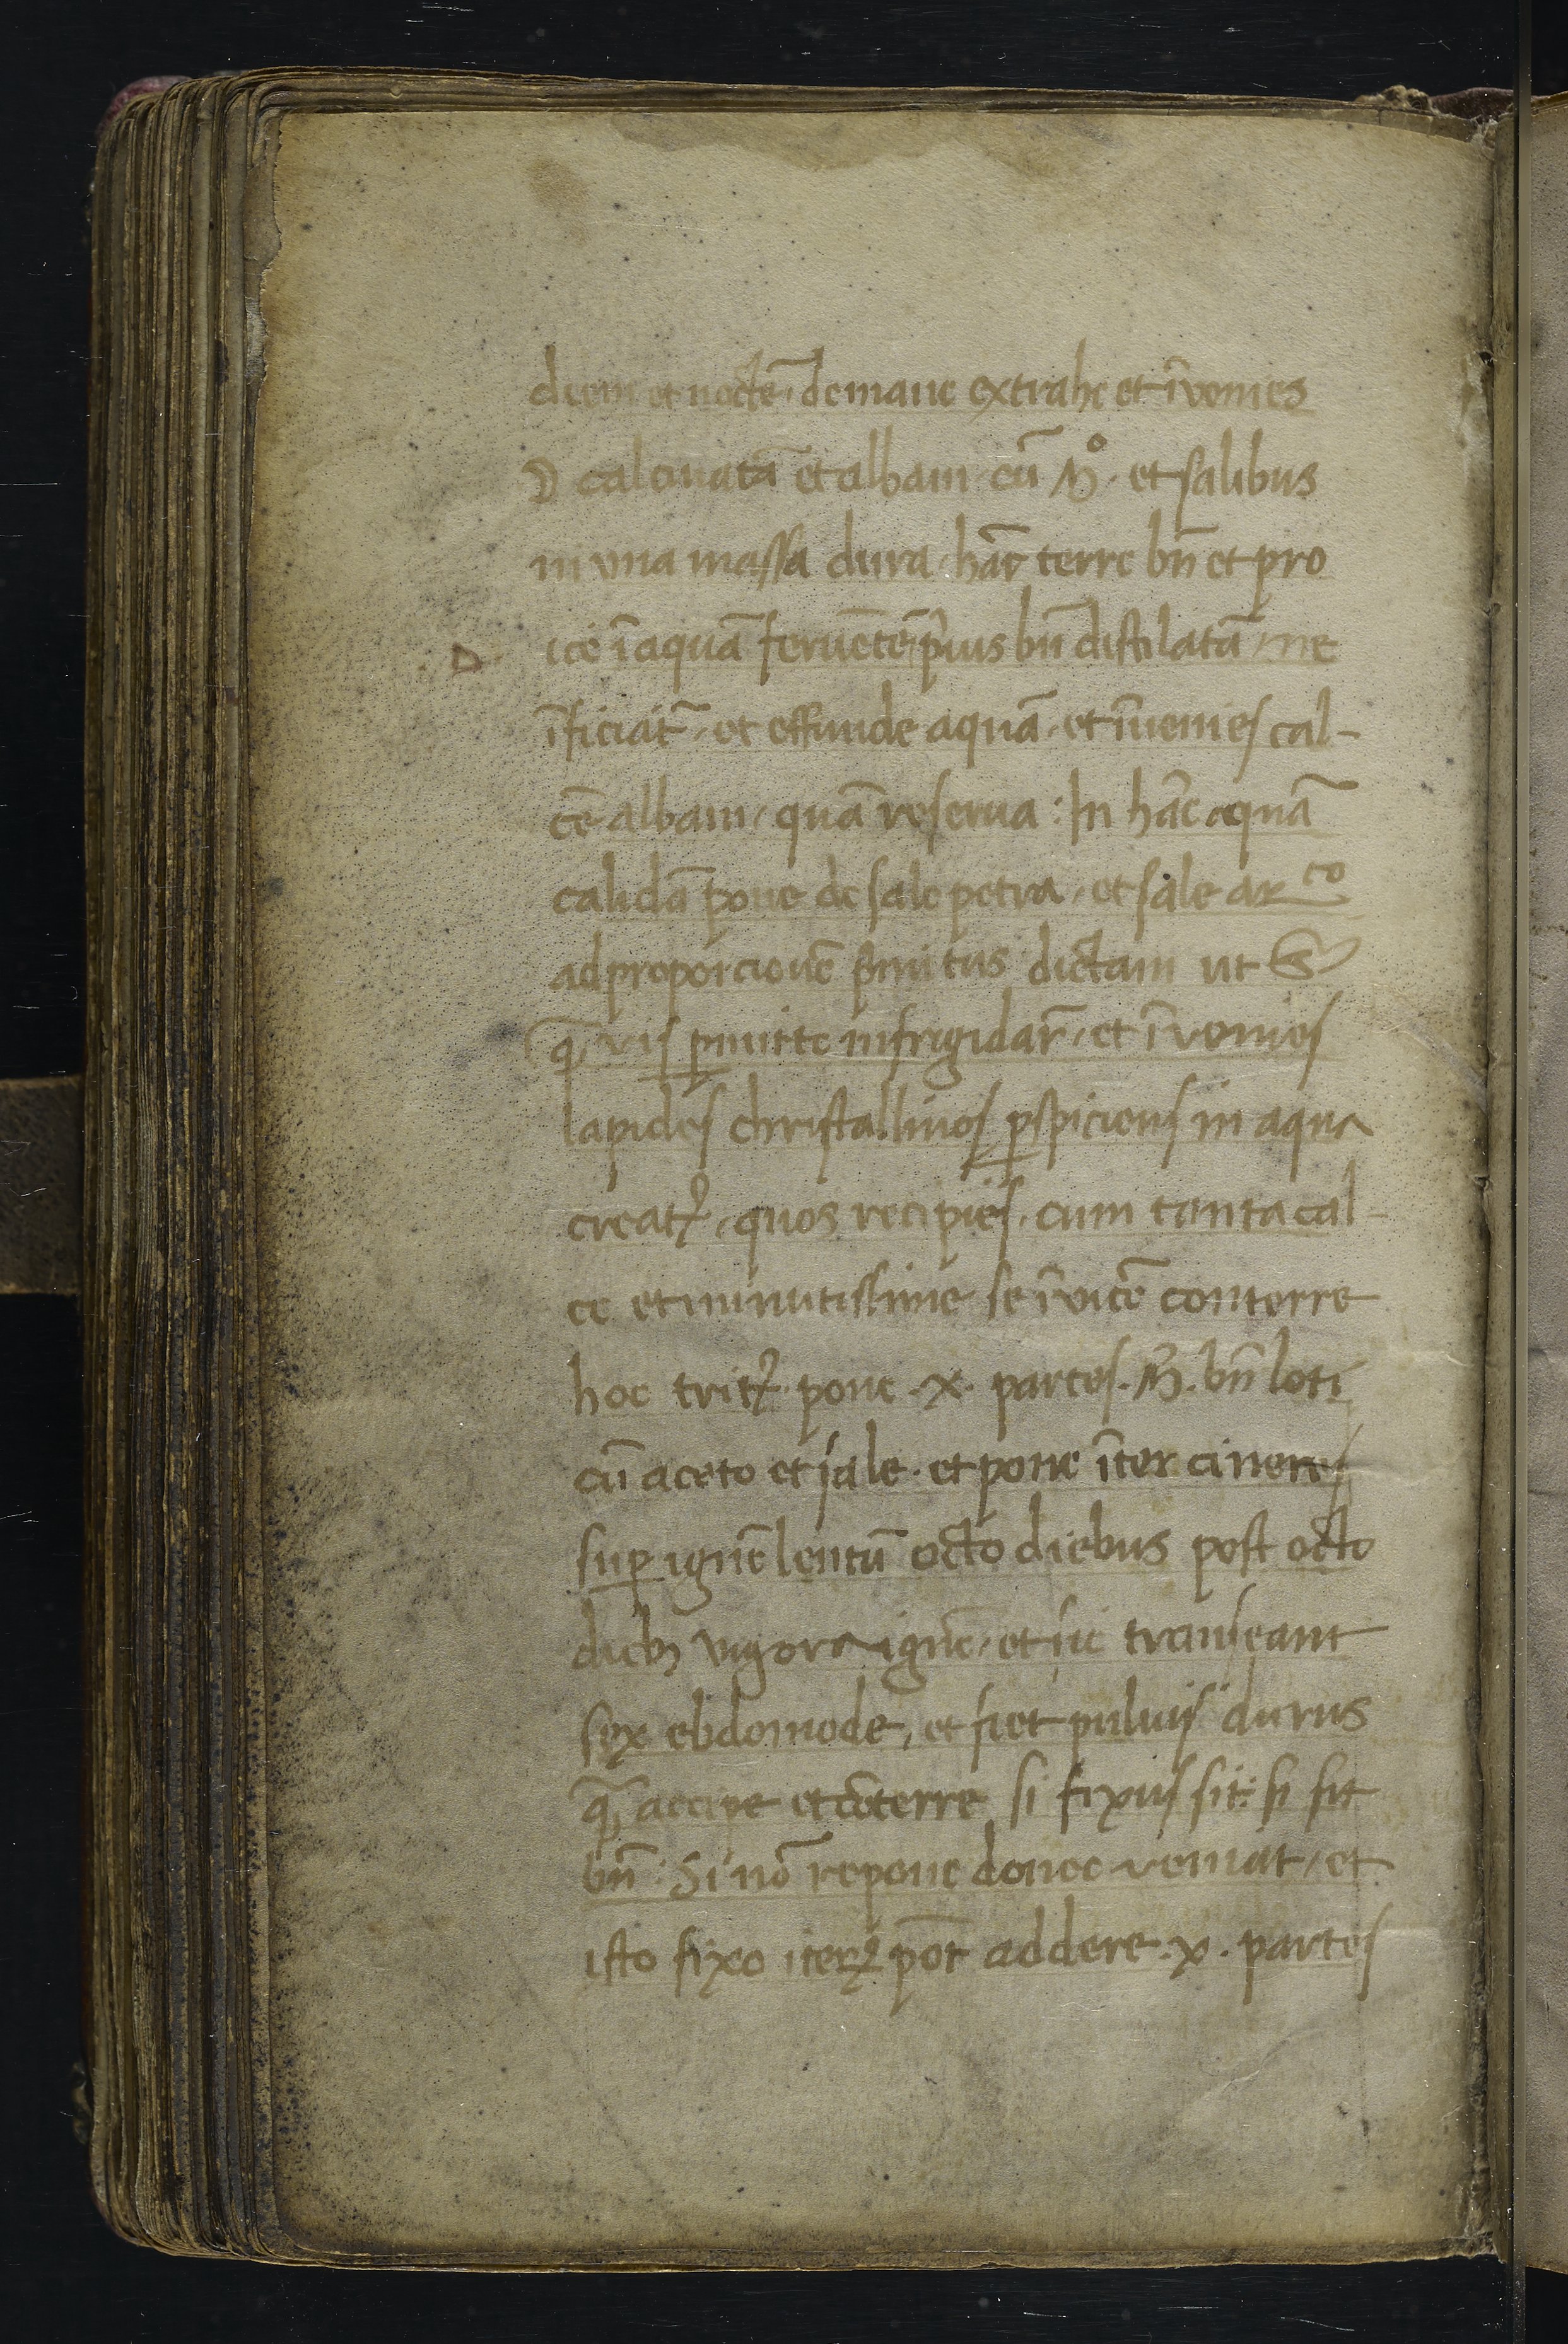 diem et noctē · de mane extrahe et īvenies
calcinatā et albam cū M̊ · et salibus
in vna massa dura · hāc terre bn̄ et pro
iice ī aquā feruētē p̄ius bn̄ distilatā / ne
īficiat᷑ · et effunde aquā · et īuenies cal-
cē albam / quā reserua : In hāc aquā
calidā pone de sale petra / et sale ar
ad proporcionē p̄mitus dictam ut
ꝑmitte infrigidar̄ · et īvenies
lapides christallinos ꝑspiciens in aqua
creatꝝ · quos recipies · cum tanta cal-
ce et minutissime se īvicē conterre
hoc tritꝝ pone · x · partes · M̄ · bn̄ loti
cū aceto et sale · et pone īter cineres
suꝑ ignē lentū octo diebus post octo
dieb᷒ vigora ignē / et sic transeant
sex ebdomode / et fiet puluis durus
accipe et cōterre si fixus sit : si sit
bn̄ : Si nō repone donec veniat / et
isto fixo iterꝝ pōt addere · x · partes